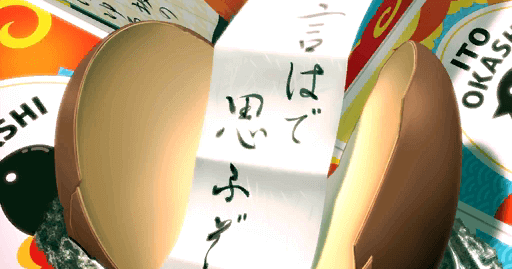 言はで
思ふぞ
ITO
OKASHI